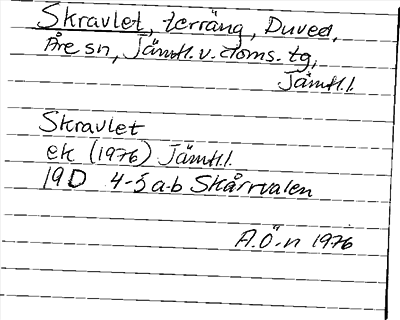 Skravlet, terräng, Duved,
Åre sn, Jämtl. v. doms. tg,
Jämtl. l.
Skravlet
ek (1976) Jämtl. l.
19D 4-5 a-b Skårrvalen
A.Ö-n 1976